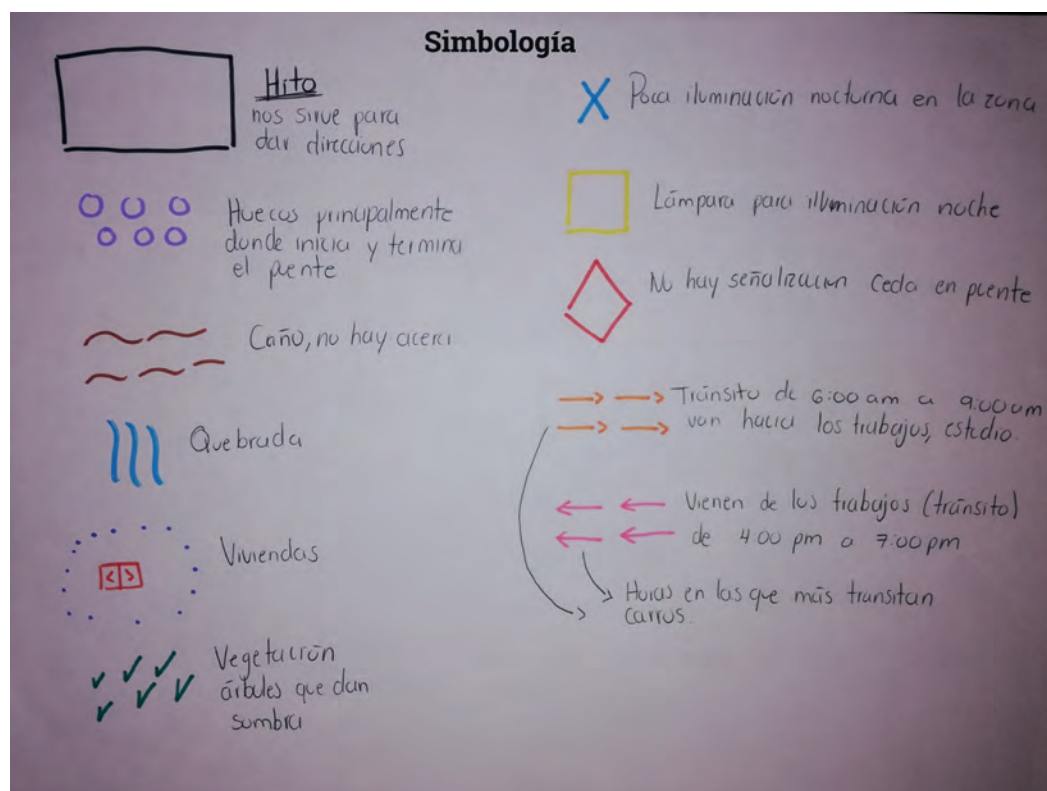 Simbología
Hito
nos sirve para
dar direcciones
Huecos principalmente
donde inicia y termina
el puente
Caño, no hay acera
Quebrada
Viviendas
Vegetación
árboles que dan
sombra
Poca iluminación nocturna en la zona
Lámpara para illuminación noche
No hay señalización Ceda en puente
Tránsito de 6:00 am a 9:00 am
van hacia los trabajos, estudio.
Vienen de los trabajos (tránsito)
de 4:00 pm a 7:00 pm
Horas en las que más transitan
carros.